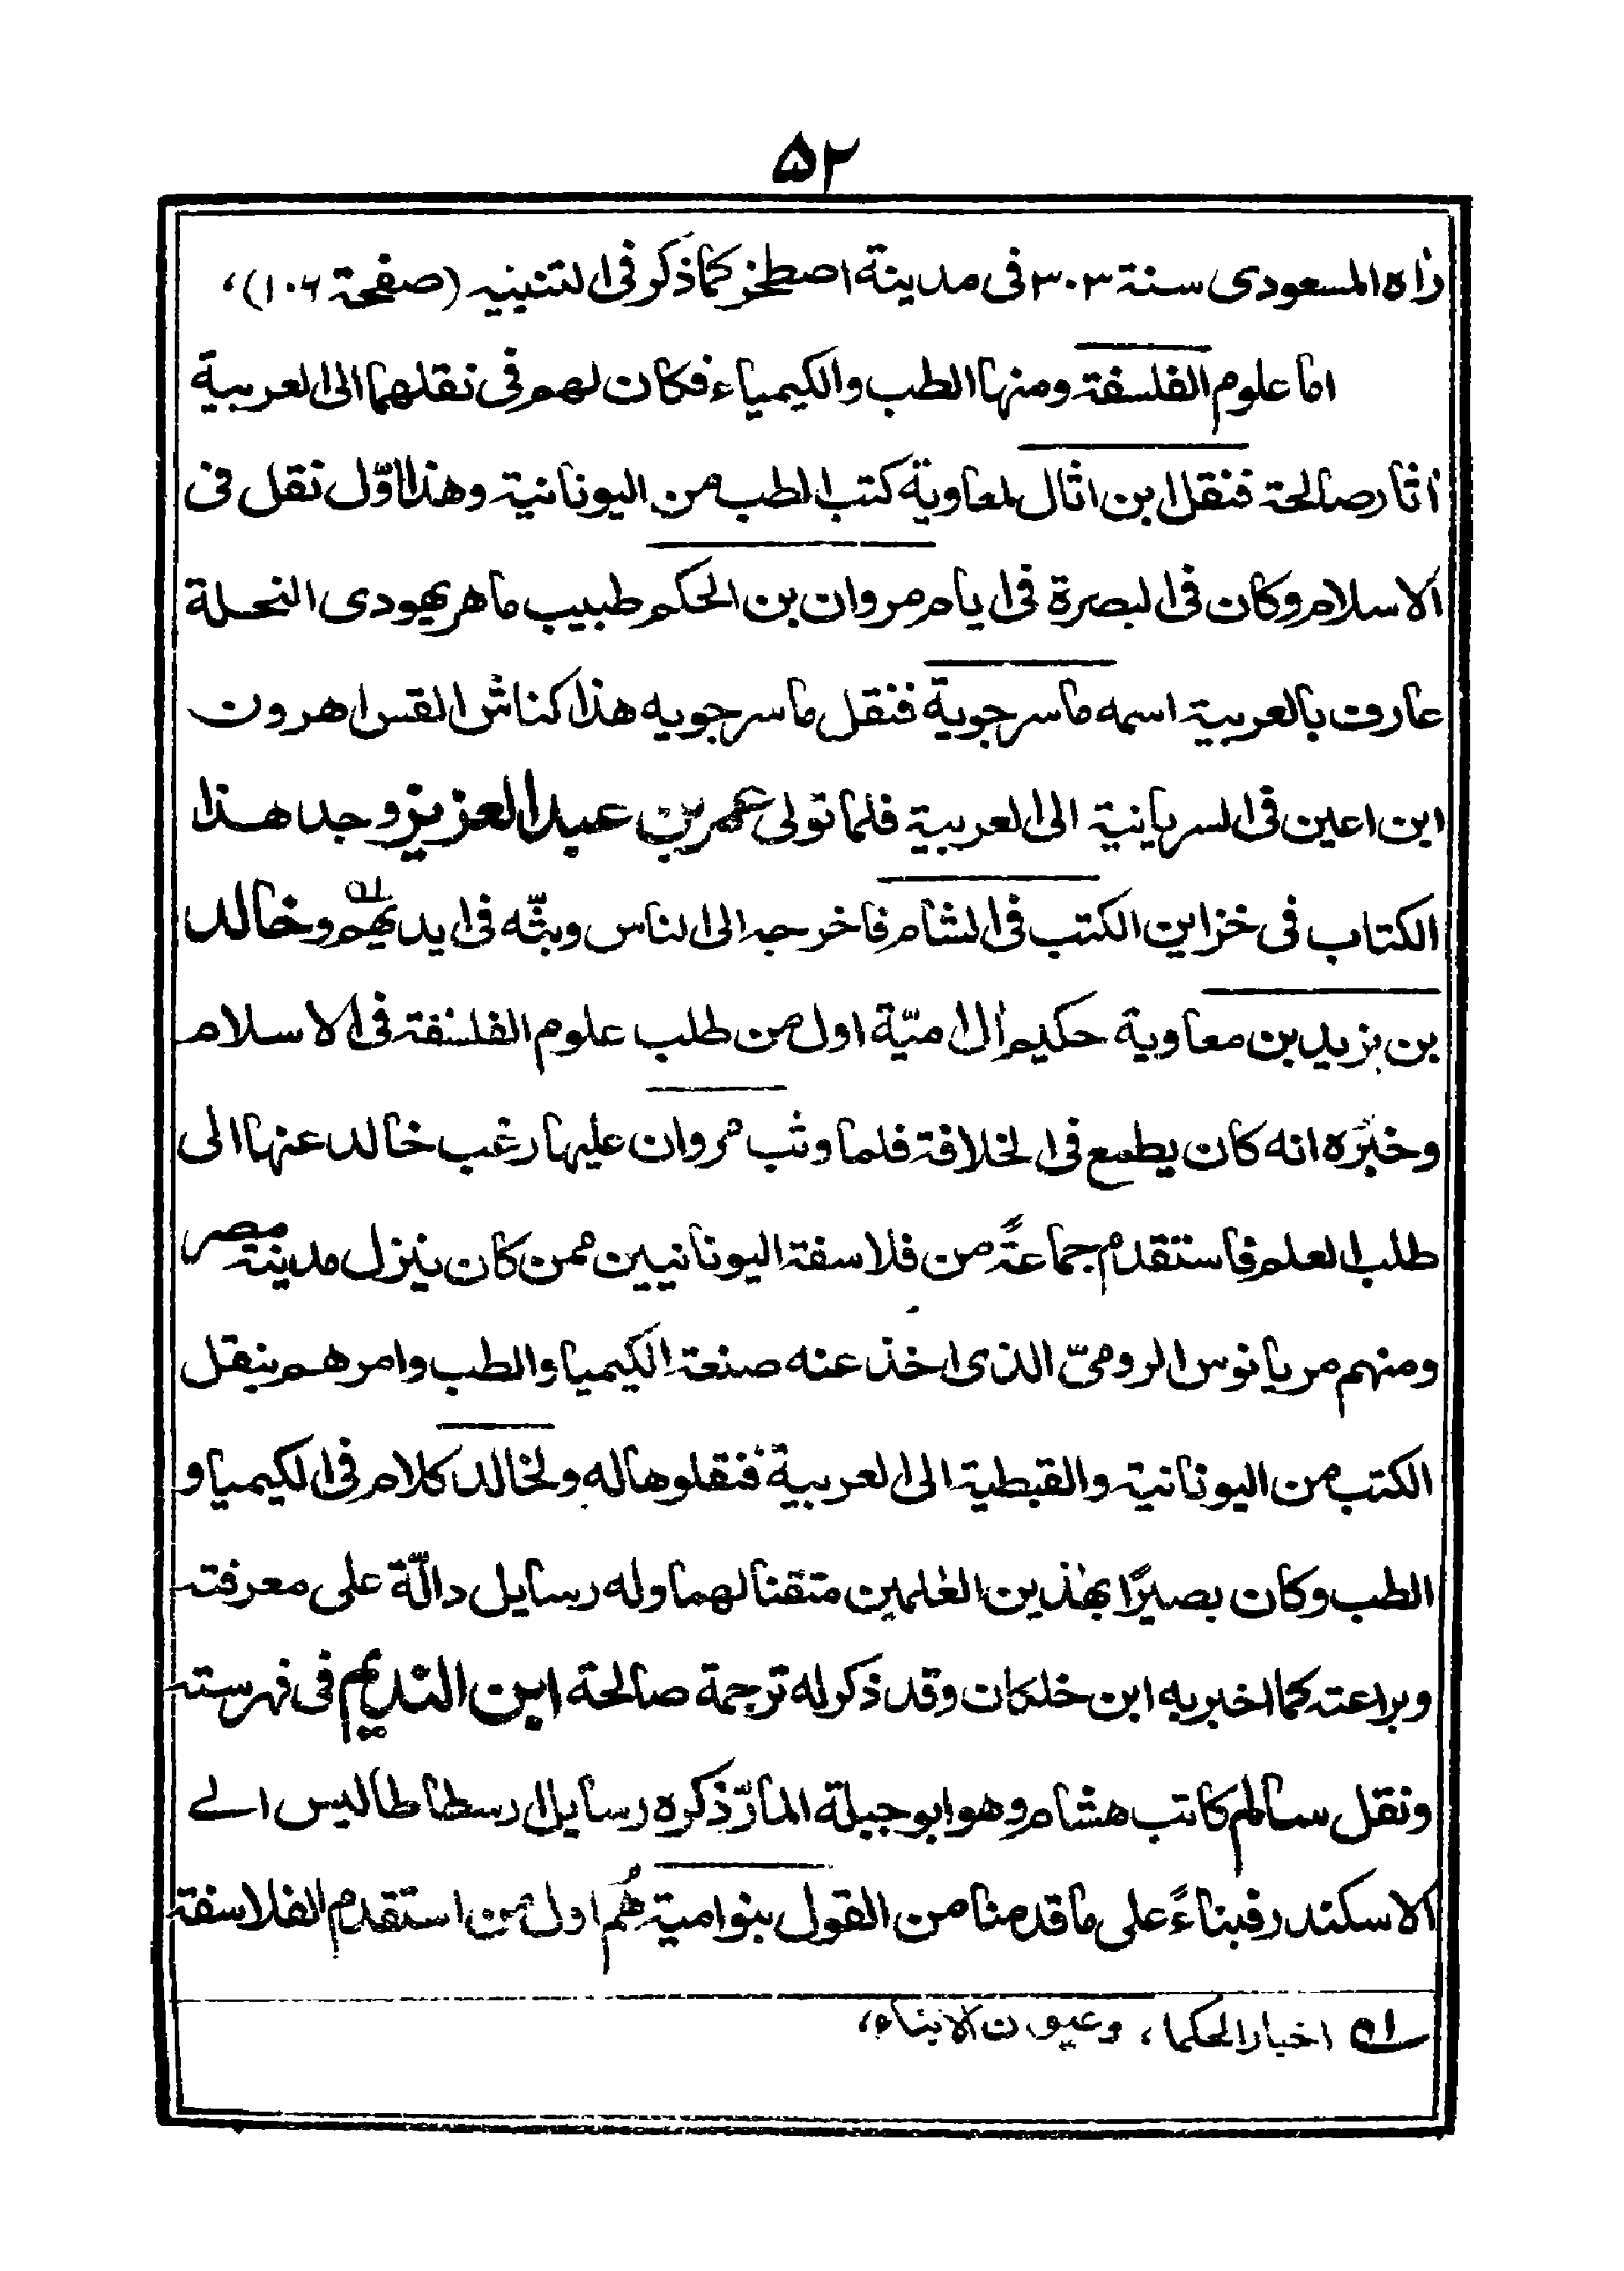 ۵۲
راٰه المسعودى سنة ۳۰۳ فى مدينة اصطخر كما ذكر فى التنبيه (صفحة ۱۰۶)،
اما علوم الفلسفة ومنها الطب والكيمياء فكان لهم فى نقلهما الى العربية
اٰثار صالحة فنقل ابن اثال لمعاوية كتب الطب من اليونانية وهذا اوّل نقل فى
الاسلام وكان فى البصرة فى ايام مروان بن الحكم طبيب ماهر يهودى النحلة
عارف بالعربية اسمه ماسرجوية فنقل ماسرجويه هذا كناش القس اهرون
ابن اعين فى السريانية الى العربية فلما تولى عمر بن عبد العزيز وجد هذا
الكتاب فى خزاين الكتب فى الشام فاخرجه الى الناس وبثّه فى ايديهم ؎۱ وخالد
بن يزيد بن معاوية حكيم اٰل اميّة اول من طلب علوم الفلسفة فى الاسلام
وخبره انه كان يطمع فى الخلافة فلما وثب مروان عليها رغب خالد عنها الى
طلب العلم فاستقدم جماعةً من فلاسفة اليونانيين ممن كان ينزل مدينة مصر
ومنهم مريانوس الرومىّ الذى اخذ عنه صنعة الكيميا والطب وامرهم بنقل
الكتب من اليونانية والقبطية الى العربية فنقلوها له ولخالد كلام فى الكيميا و
الطب وكان بصيرًا بهٰذين العلمين متقنا لهما وله رسايل دالّة على معرفته
وبراعته كما اخبر به ابن خلكان وقد ذكر له ترجمة صالحة ابن النديم فى فهرسته
ونقل سالم كاتب هشام وهو ابو جبلة المارّ ذكره رسايل ارسطاطاليس الے
الاسكندر فبناءً على ما قدمنا من القول بنو امية هُم اول من استقدم الفلاسفة
؎۱ اخبار الحكما، وعيون الابناء،